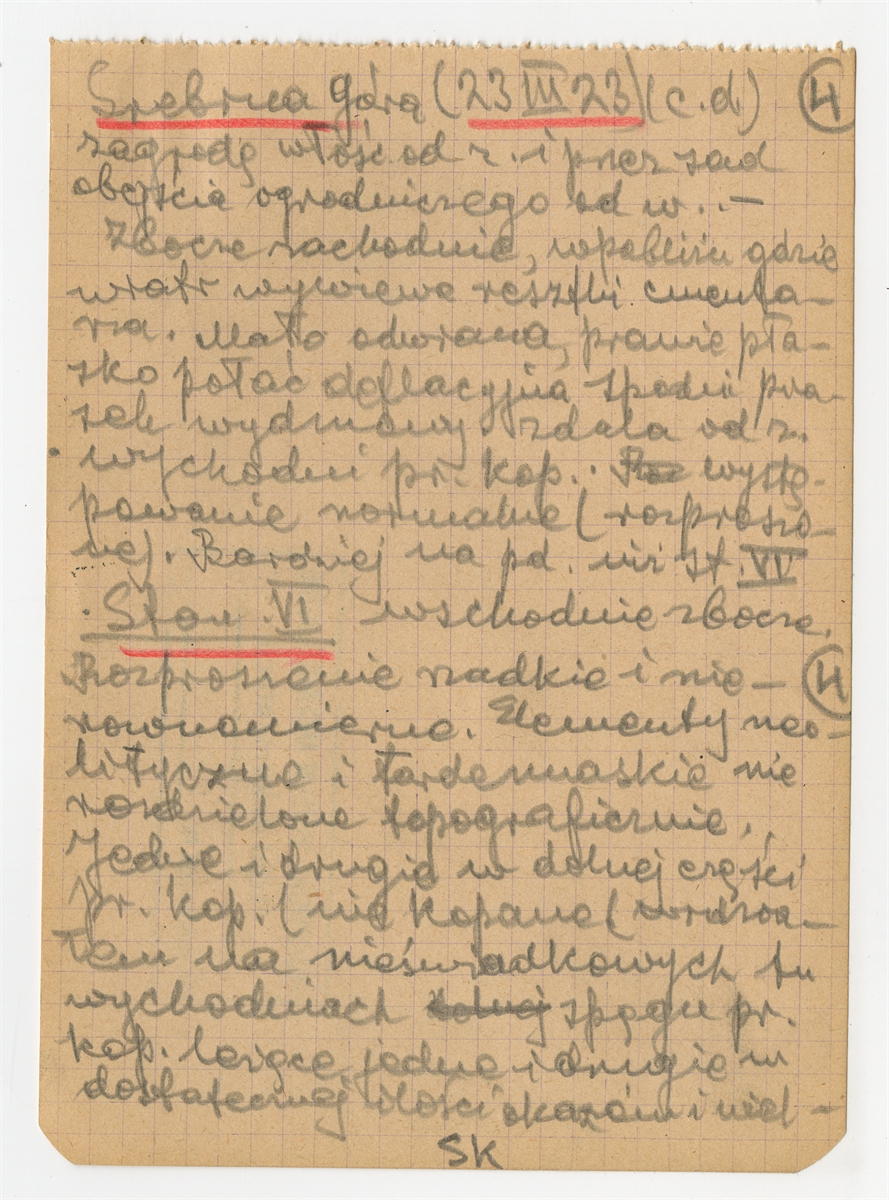 Srebrna Górą (23 III 23) (c.d.) 4
zagrodę włośc od z. i przez sad
obejścia ogrodniczego od w.. —
Zbocze zachodnie, wpobliżu gdzie
wiatr wywiewa resztki cmenta-
rza. Mało odwiana, prawie pła-
sko połać deflacyjna spodu pia-
sek wydmowy. zdala od z.
wychodni pr. kop.. wystę-
powanie normalne (rozproszo-
ne). Bardziej na pd. niż st. IV
Stan. VI wschodnie zbocze.
Rozproszenie rzadkie i nie- 4
równomierne. Elementy neo-
lityczne i tardenuaskie nie
rozdzielone topograficznie.
Jedne i drugie w dolnej części
pr. kop. (nie kopane (widzia-
łem na nieświadkowych tu
wychodniach spągu pr.
kop. leżące jedne i drugie w
dostatecznej ilości okazów i niel-
SK